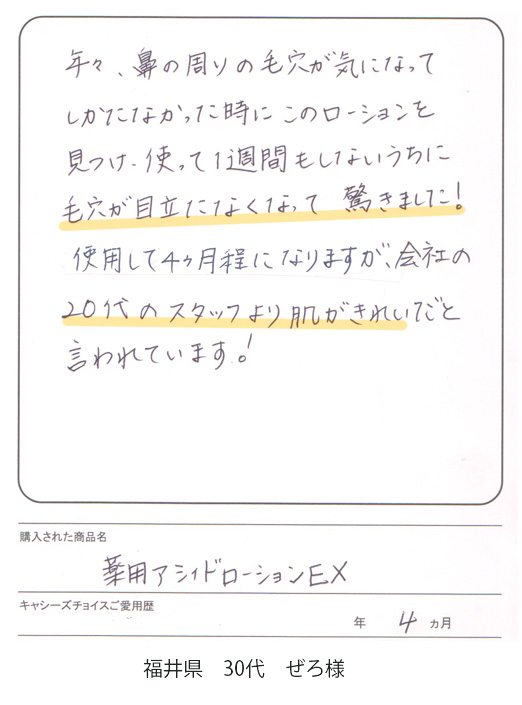 年々、鼻の周りの毛穴が気になって
しかたなかった時にこのローションを
見つけ、使って1週間もしないうちに
毛穴が目立たなくなって 驚きました!
使用して4ヶ月程になりますが、会社の
20代のスタッフより肌がきれいだと
言われています。!
購入された商品名
薬用アシィドローションEX
キャシーズチョイスご愛用歴
年 4 ヵ月
福井県 30代 ぜろ様